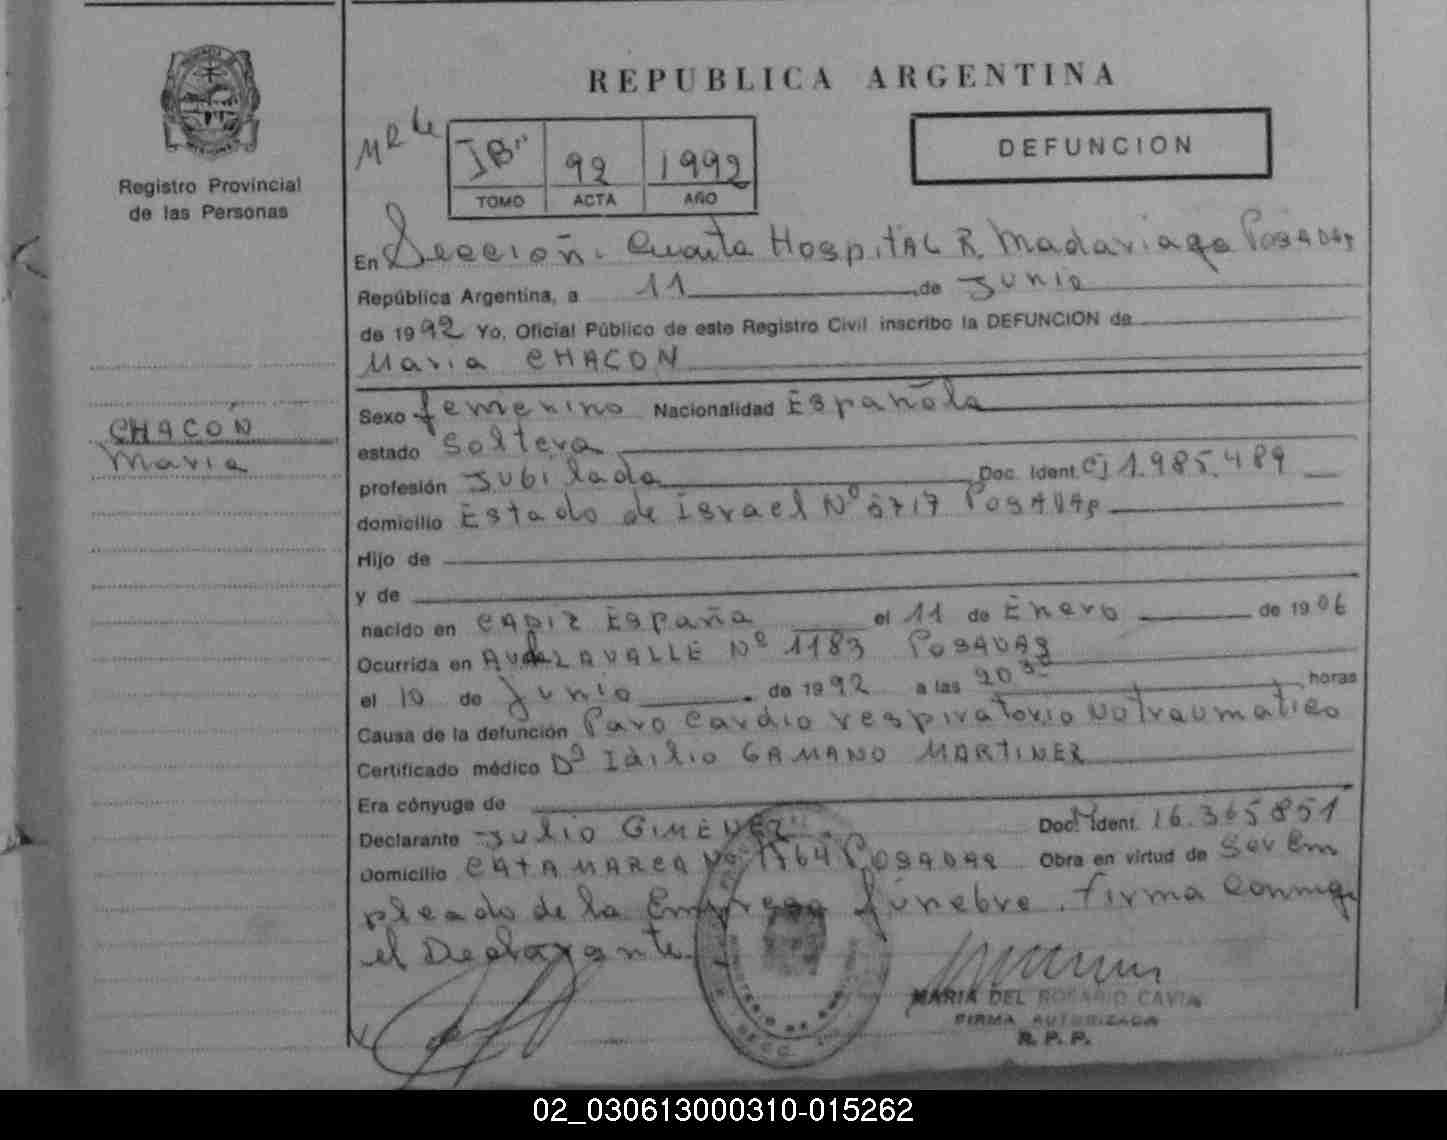 REPUBLICA ARGENTINA
Registro Provincial
de las Personas
1992
92
TOMO ACTA AÑO
DEFUNCION
En Sección. Cuarta Hospital R. Madariaga Posadas
República Argentina, a 11 de Junio
de 1992 Yo, Oficial Público de este Registro Civil inscribo la DEFUNCION de
Maria CHACON
CHACON
Maria
Sexo femenino Nacionalidad Española
estado Soltera
profesión Jubilada Doc. Ident. CI 1.985.489
domicilio Estado de Israel Nº Posadas
Hijo de
y de
nacido en CADIZ España el 11 de Enero de 1906
Ocurrida en AVda LAVALLE Nº 1183 POSADAS
el 10 de Junio de 1992 a las 20 30 horas
Causa de la defunción Paro Cardio respiratorio No traumatico
Certificado médico Idilio GAMANO MARTINEZ
Era cónyuge de
Declarante Julio GIMENEZ Doc. Ident. 16.365851
Domicilio CATAMARCA Nº 1764 POSADAS Obra en virtud de Ser Em
pleado de la Empresa fúnebre. firma Conmigo
el Declarante
MARIA DEL ROSARIO CAVIA
FIRMA AUTORIZADA
R. P. P.
02_030613000310-015262